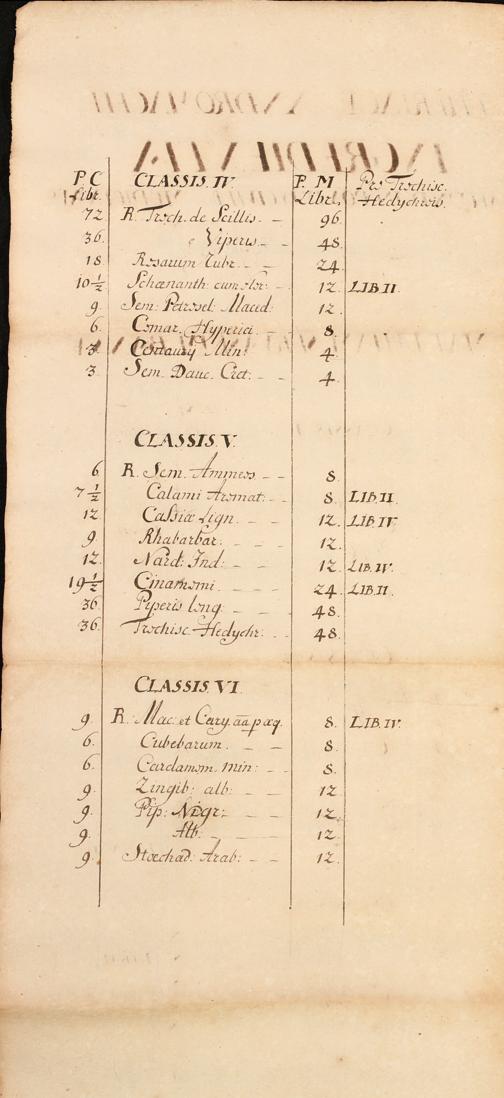 P. C CLASSIS. IV P. M Pro Trochisc.
Libr. Libr. Hedychrois.
72 R. Troch. de Scillis. 96
36. e Viperis 48.
18 Rosarum Rubr. 24
10 1/2 Schœnanth: cum flor: 12. LIB II.
9. Sem: Petrosel: Maced: 12.
6. Comar. Hyperici 8.
3 Centaury Min: 4
3 Sem. Dauc. Cret. 4.
CLASSIS. V.
6 R. Sem. Ammeos 8.
7 1/2 Calami Aromat: 8. LIB. II.
12 Cassiæ Lign. 12. LIB. IV
9. Rhabarbar: 12.
12. Nard: Ind: 12. LIB. IV.
19 1/2 Cinamomi 24. LIB. II.
36. Piperis long: 48.
36. Trochisc. Hedychr: 48.
CLASSIS. VI
9. R. Mac: et Cary. aa p. æq. 8. LIB IV.
6. Cubebarum. 8.
6. Cardamom. min: 8.
9. Zingib: alb: 12
9. Pip: Nigr: 12.
9. Alb: 12.
9. Stœchad: Arab: 12.